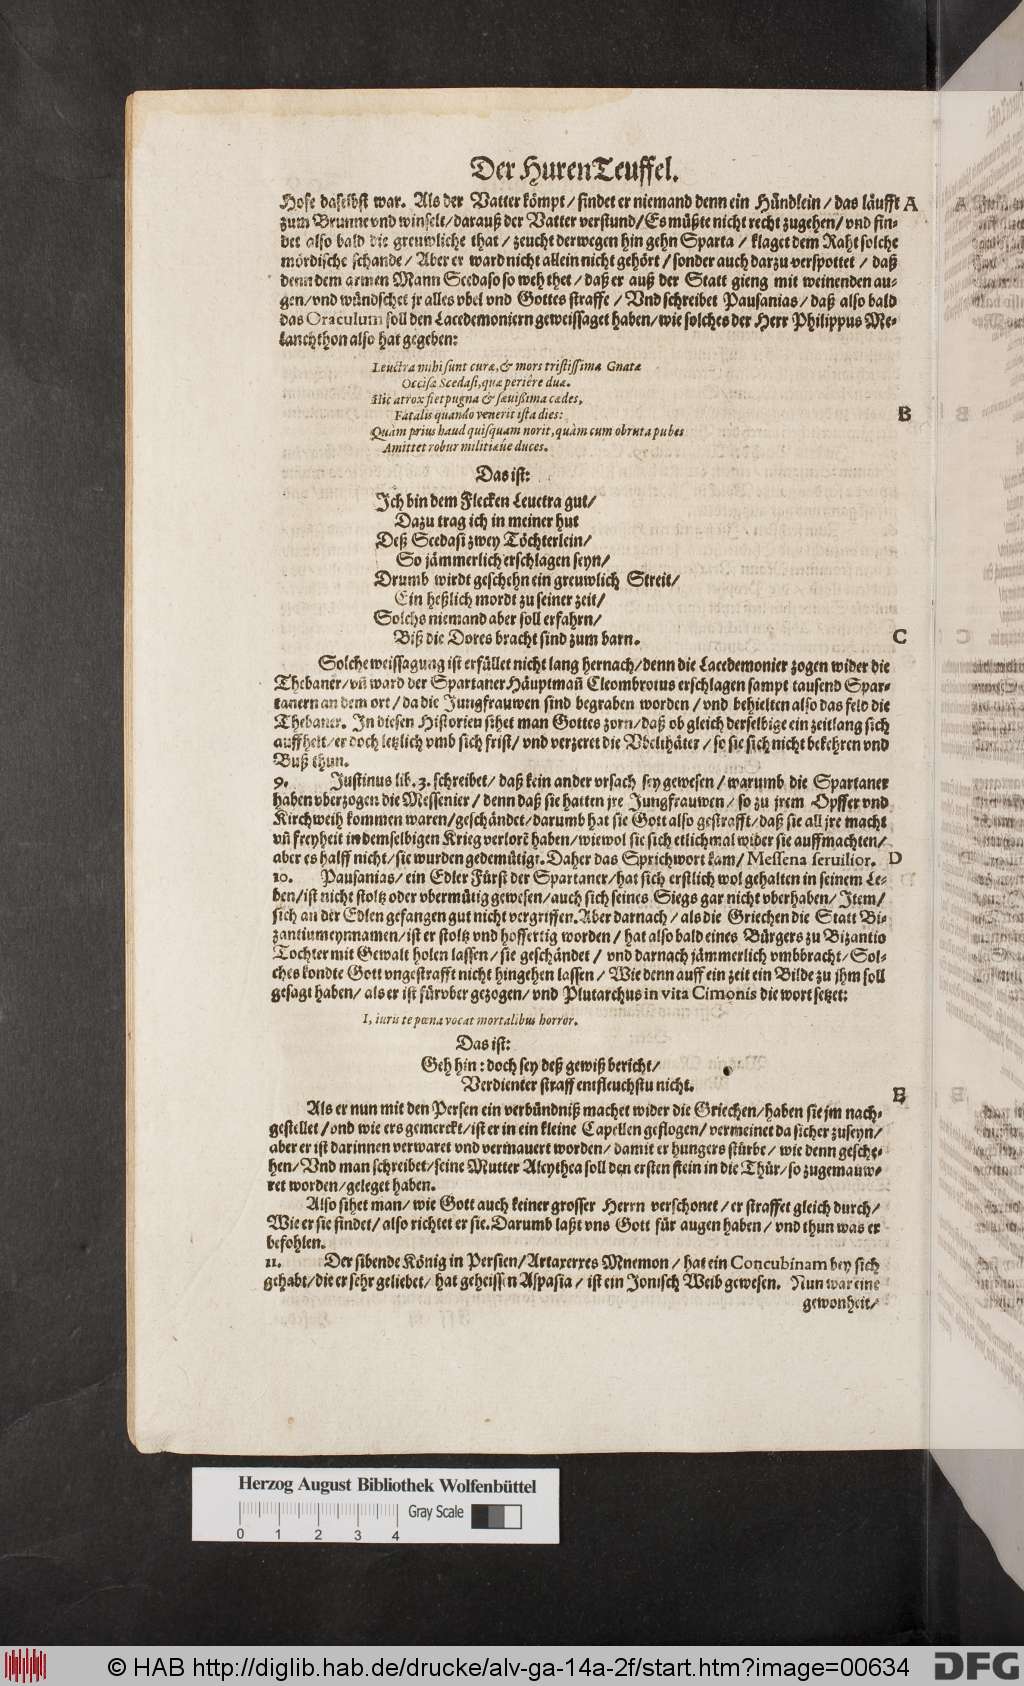 Der HurenTeuffel.
Hofe daselbst war. Als der Vatter kömpt / findet er niemand denn ein Hündlein / das läufft A
zum Brunne vnd winselt / darauß der Vatter verstund / Es müßte nicht recht zugehen / vnd fin-
det also bald die greuwliche that / zeucht derwegen hin gehn Sparta / klaget dem Raht solche
mördische schande / Aber er ward nicht allein nicht gehört / sonder auch darzu verspottet / daß
denn dem armen Mann Scedaso so weh thet / daß er auß der Statt gieng mit weinenden au-
gen / vnd wündschet jr alles vbel vnd Gottes straffe / Vnd schreibet Pausanias / daß also bald
das Oraculum soll den Lacedemoniern geweissaget haben / wie solches der Herr Philippus Me-
lanchthon also hat gegeben:
Leuctra mihi sunt curæ, & mors tristissima Gnatæ
Occisæ Scedasi, quæ periêre duæ.
Hic atrox fiet pugna & sæuißima cædes,
Fatalis quando venerit ista dies: B
Quàm prius haud quisquam norit, quàm cum obruta pubes
Amittet robur militiæúe duces.
Das ist:
Ich bin dem Flecken Leuctra gut /
Dazu trag ich in meiner hut
Deß Scedasi zwey Töchterlein /
So jämmerlich erschlagen seyn /
Drumb wirdt geschehn ein greuwlich Streit /
Ein heßlich mordt zu seiner zeit /
Solchs niemand aber soll erfahrn /
Biß die Dores bracht sind zum barn. C
Solche weissagung ist erfüllet nicht lang hernach / denn die Lacedemonier zogen wider die
Thebaner / vñ ward der Spartaner Häuptmañ Cleombrotus erschlagen sampt tausend Spar-
tanern an dem ort / da die Jungfrauwen sind begraben worden / vnd behielten also das feld die
Thebaner. In diesen Historien sihet man Gottes zorn / daß ob gleich derselbige ein zeitlang sich
auffhelt / er doch letzlich vmb sich frist / vnd verzeret die Vbelthäter / so sie sich nicht bekehren vnd
Buß thun.
9. Justinus lib. 3. schreibet / daß kein ander vrsach sey gewesen / warumb die Spartaner
haben vberzogen die Messenier / denn daß sie hatten jre Jungfrauwen / so zu jrem Opffer vnd
Kirchweih kommen waren / geschändet / darumb hat sie Gott also gestrafft / daß sie all jre macht
vñ freyheit in demselbigen Krieg verlorē haben / wiewol sie sich etlichmal wider sie auffmachten /
aber es halff nicht / sie wurden gedemütigt. Daher das Sprichwort kam / Messena seruilior. D
10. Pausanias / ein Edler Fürst der Spartaner / hat sich erstlich wol gehalten in seinem Le-
ben / ist nicht stoltz oder vbermütig gewesen / auch sich seines Siegs gar nicht vberhaben / Item /
sich an der Edlen gefangen gut nicht vergriffen. Aber darnach / als die Griechen die Statt Bi-
zantium eynnamen / ist er stoltz vnd hoffertig worden / hat also bald eines Bürgers zu Bizantio
Tochter mit Gewalt holen lassen / sie geschändet / vnd darnach jämmerlich vmbbracht / Sol-
ches kondte Gott vngestrafft nicht hingehen lassen / Wie denn auff ein zeit ein Bilde zu jhm soll
gesagt haben / als er ist fürvber gezogen / vnd Plutarchus in vita Cimonis die wort setzet:
I, iuris te pœna vocat mortalibus horror.
Das ist:
Geh hin : doch sey deß gewiß bericht /
Verdienter straff entfleuchstu nicht. E
Als er nun mit den Persen ein verbündniß machet wider die Griechen / haben sie jm nach-
gestellet / vnd wie ers gemerckt / ist er in ein kleine Capellen geflogen / vermeinet da sicher zuseyn /
aber er ist darinnen verwaret vnd vermauert worden / damit er hungers stürbe / wie denn gesche-
hen / Vnd man schreibet / seine Mutter Alcythea soll den ersten stein in die Thür / so zugemauw-
ret worden / geleget haben.
Also sihet man / wie Gott auch keiner grosser Herrn verschonet / er straffet gleich durch /
Wie er sie findet / also richtet er sie. Darumb laßt vns Gott für augen haben / vnd thun was er
befohlen.
11. Der sibende König in Persien / Artaxerxes Mnemon / hat ein Concubinam bey sich
gehabt / die er sehr geliebet / hat geheissen Aspasia / ist ein Jonisch Weib gewesen. Nun war eine
gewonheit /
Herzog August Bibliothek Wolfenbüttel
Gray Scale
0 1 2 3 4
© HAB http://diglib.hab.de/drucke/alv-ga-14a-2f/start.htm?image=00634 DFG